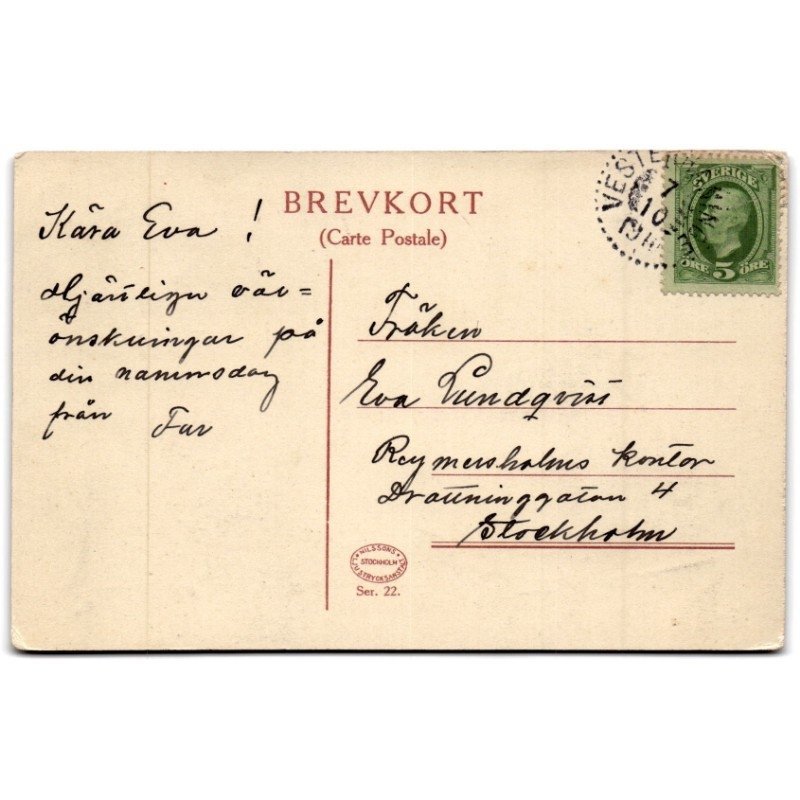 BREVKORT
(Carte Postale)
Kära Eva !
Hjärtliga väl=
önskningar på
din namnsdag
från Far
Fröken
Eva Lundqvist
Reymersholms kontor
Drottninggatan 4
Stockholm
NILSSONS
STOCKHOLM
LJUSTRYCKSANSTALT
Ser. 22.
SVERIGE
ÖRE 5 ÖRE
7
10